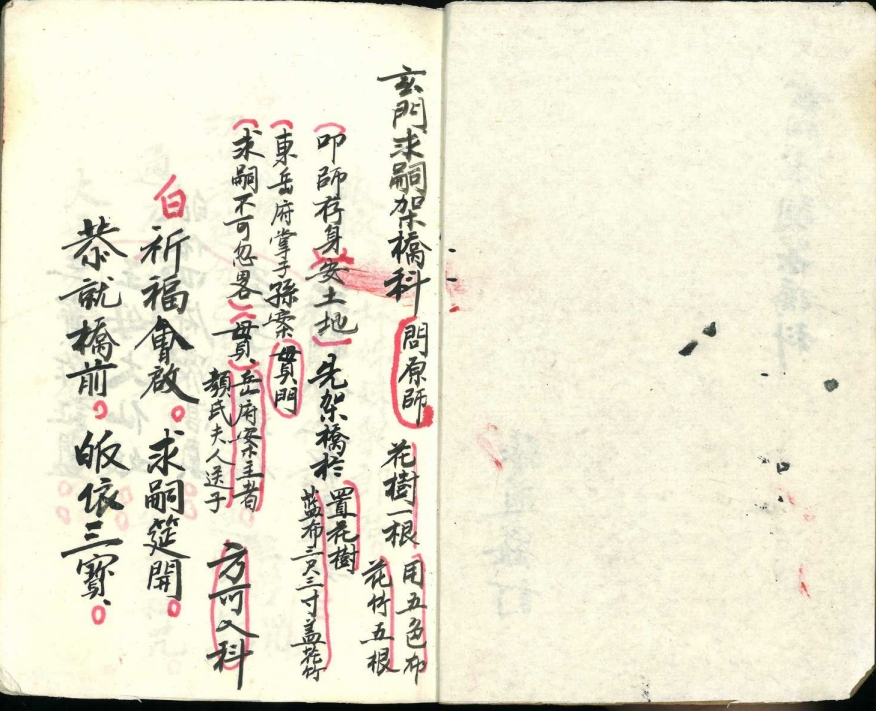 玄門求嗣架橋科 問原師 花樹一根 用五色布 花竹五根
叩師存身安土地 先架橋於 置花樹 蓝布三尺三寸盖花竹
東岳府掌子孫案 貢門
求嗣不可忽畧 貢 岳府案主者 顏氏夫人送子 方可入科
白 祈福會啟。求嗣筵開。
恭就橋前。皈依三寶。